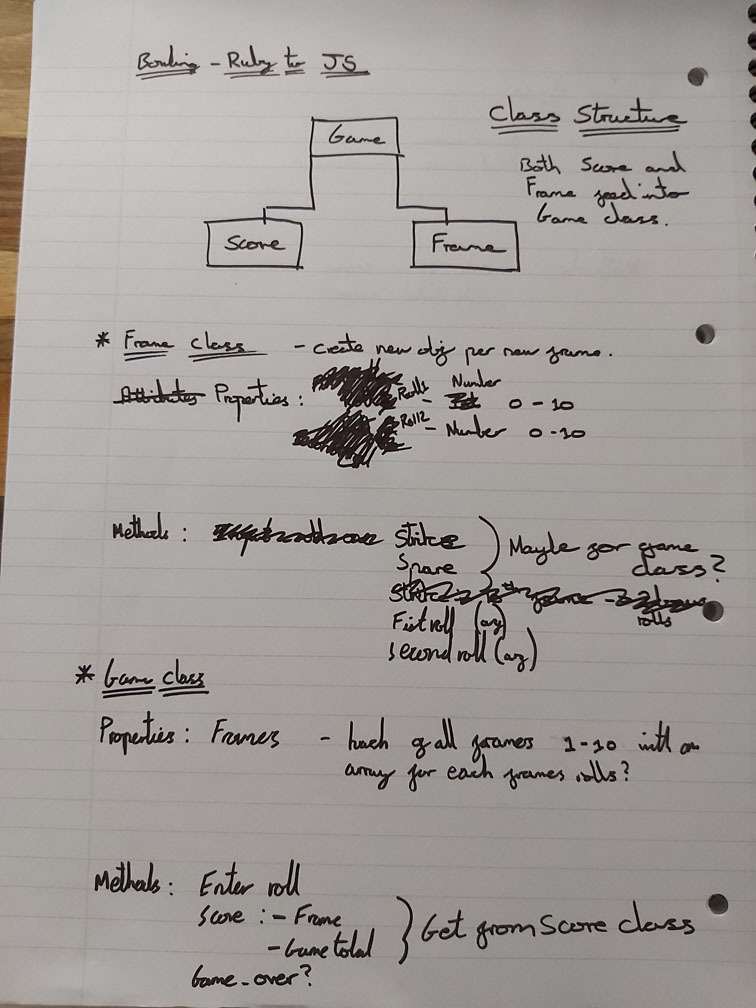 Bowling - Ruby to JS
Class Structure
Game
Both Score and
Frame feed into
Game class.
Score
Frame
* Frame class - create new obj per new frame.
Attributes Properties : Roll1 - Number 0 - 10
Roll2 - Number 0 - 10
Methods : Strike
Spare
} Maybe for game
class?
rolls
First roll (arg)
Second roll (arg)
* Game class
Properties : Frames - hash of all frames 1 - 10 with an
array for each frames rolls?
Methods : Enter roll
Score : - Frame
- Game total
} Get from Score class
Game_over?